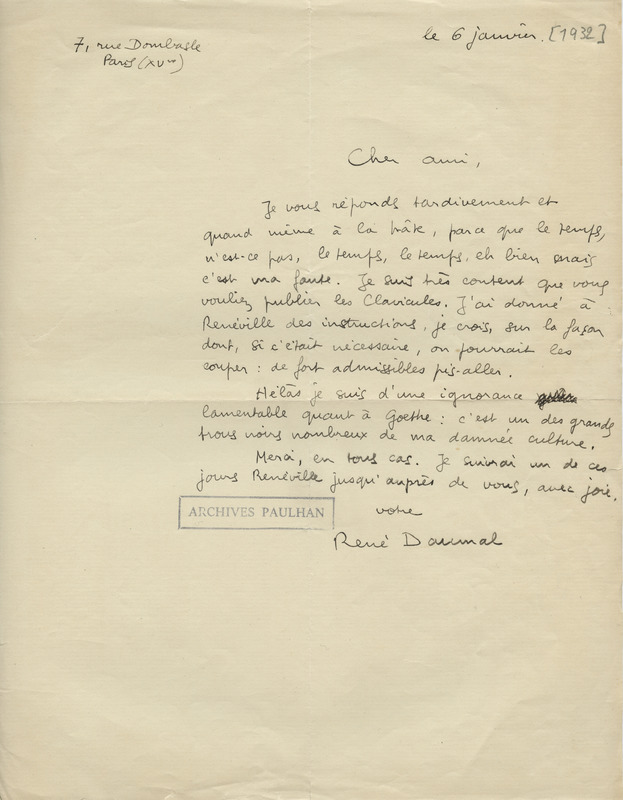 7, rue Dombasle
Paris (XVe)
le 6 janvier. [1932]
Cher ami,
Je vous réponds tardivement et
quand même à la hâte, parce que le temps,
n'est-ce pas, le temps, le temps, eh bien mais
c'est ma faute. Je suis très content que vous
vouliez publier les Clavicules. J'ai donné à
Renéville des instructions, je crois, sur la façon
dont, si c'était nécessaire, on pourrait les
couper : de fort admissibles pis-aller.
Hélas je suis d'une ignorance
lamentable quant à Goethe : c'est un des grands
trous noirs nombreux de ma damnée culture.
Merci, en tous cas. Je suivrai un de ces
jours Renéville jusqu'auprès de vous, avec joie.
votre
ARCHIVES PAULHAN
René Daumal